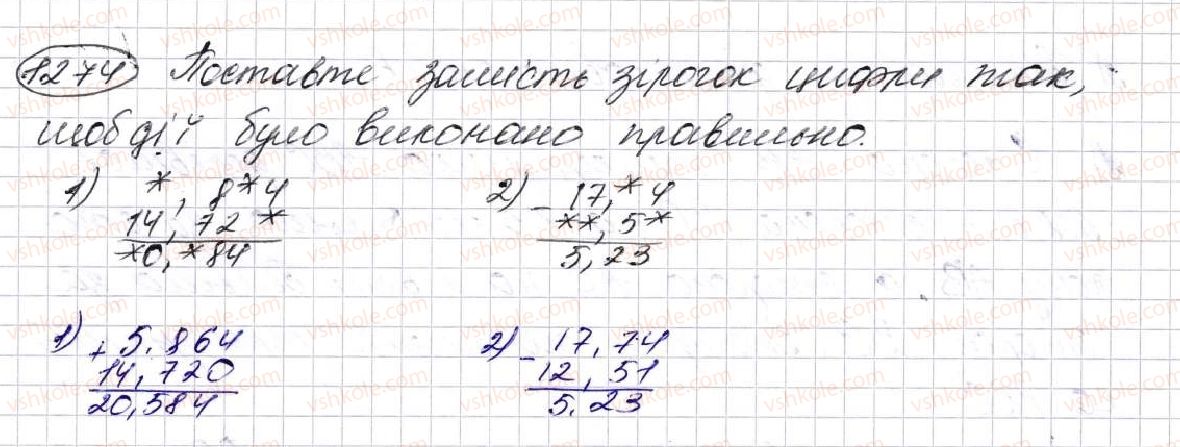 1274 Поставте замість зірочок цифри так,
щоб дії було виконано правильно.
1) *,8*4
14,72*
*0,*84
2) - 17,*4
**,5*
5,23
1) + 5.864
14,720
20,584
2) - 17,74
12,51
5.23